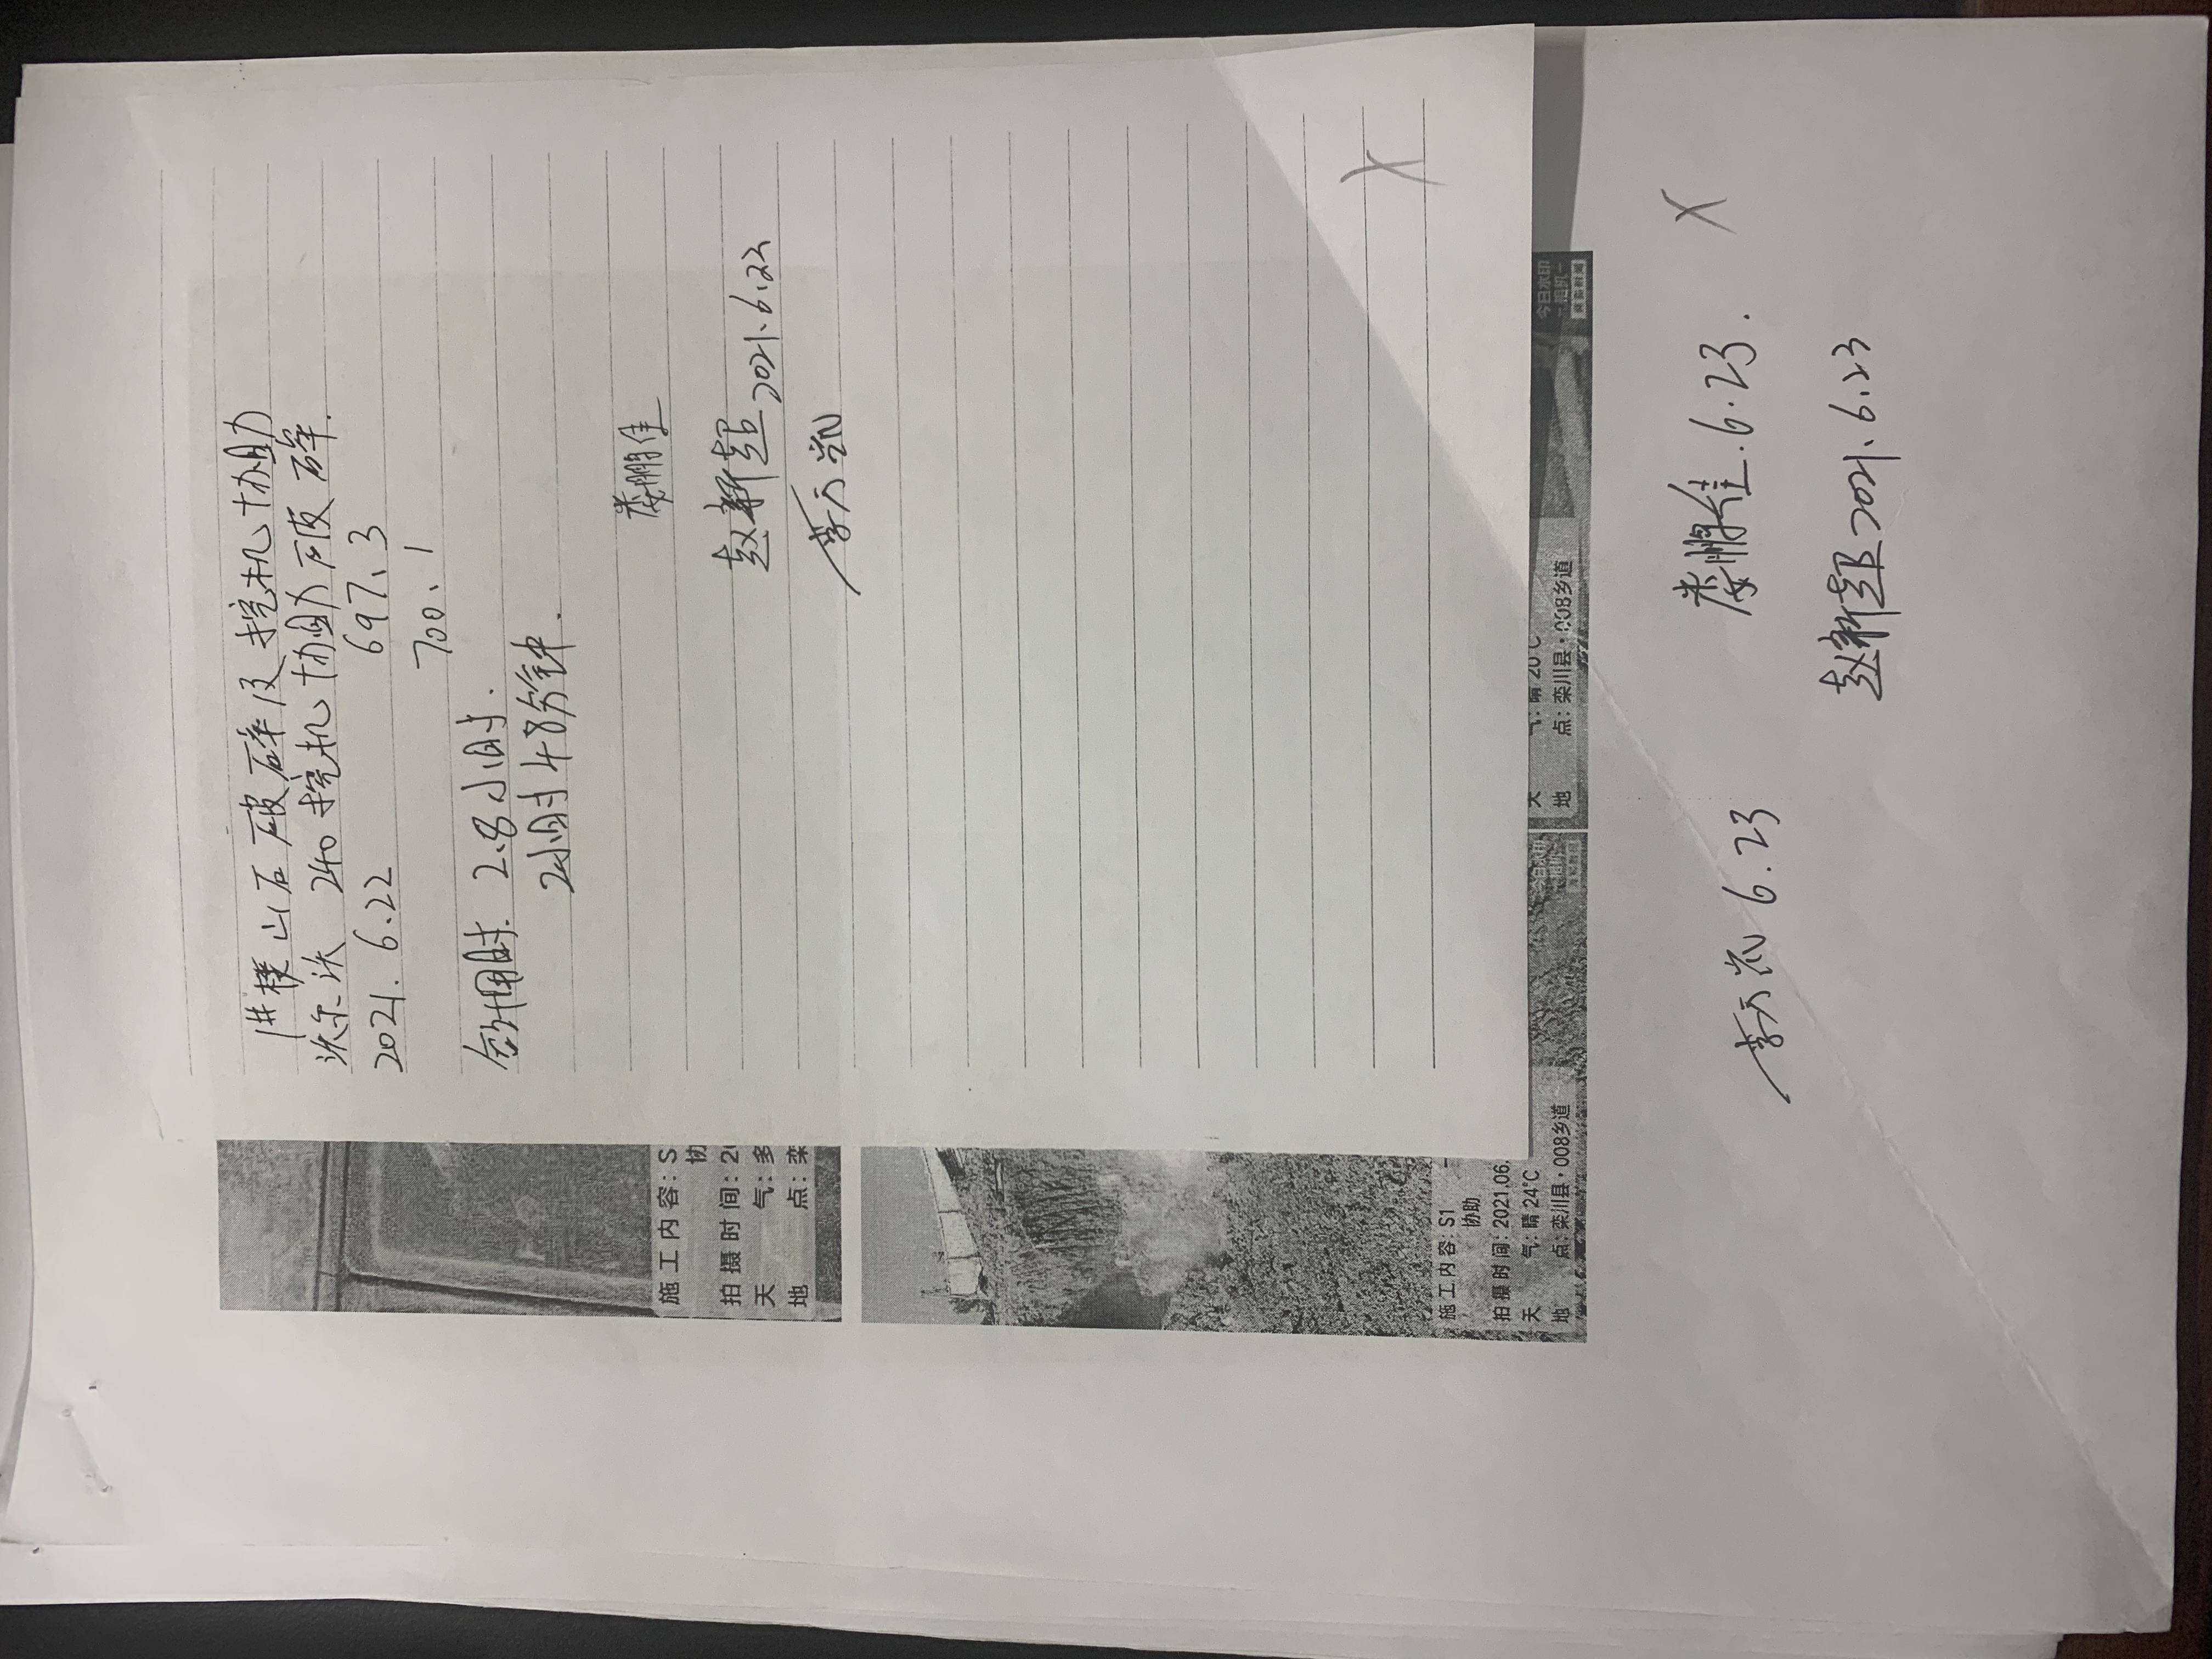 1#楼山石破碎及挖机协助
沃尔沃 240挖机协助破碎.
2021.6.22 697.3
700.1
合计用时 2.8小时.
2小时48分钟.
娄鹏佳
赵新超 2021.6.22
李天凯
施工内容: S
协
拍摄时间: 20
天 气: 多
地 点: 栾
施工内容: S1
协助
拍摄时间: 2021.06.
天 气: 晴 24℃
地 点: 栾川县·008乡道
今日水印
天 气: 晴 20℃
地 点: 栾川县·008乡道
今日水印
相机
娄鹏佳.6.23.
李天凯 6.23
赵新超 2021.6.23